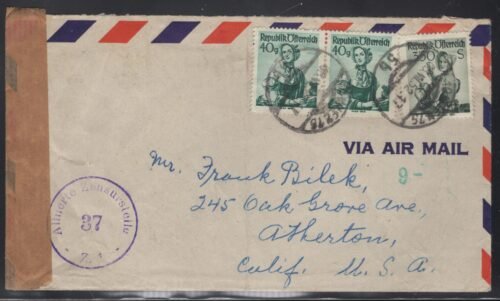 Republik Österreich Republik Österreich Republik Österreich
40g 40g 3.50 S
VIA AIR MAIL
9-
Mr. Frank Bilek,
245 Oak Grove Ave,
Atherton,
Calif. U. S. A.
Alliierte Zensurstelle
37